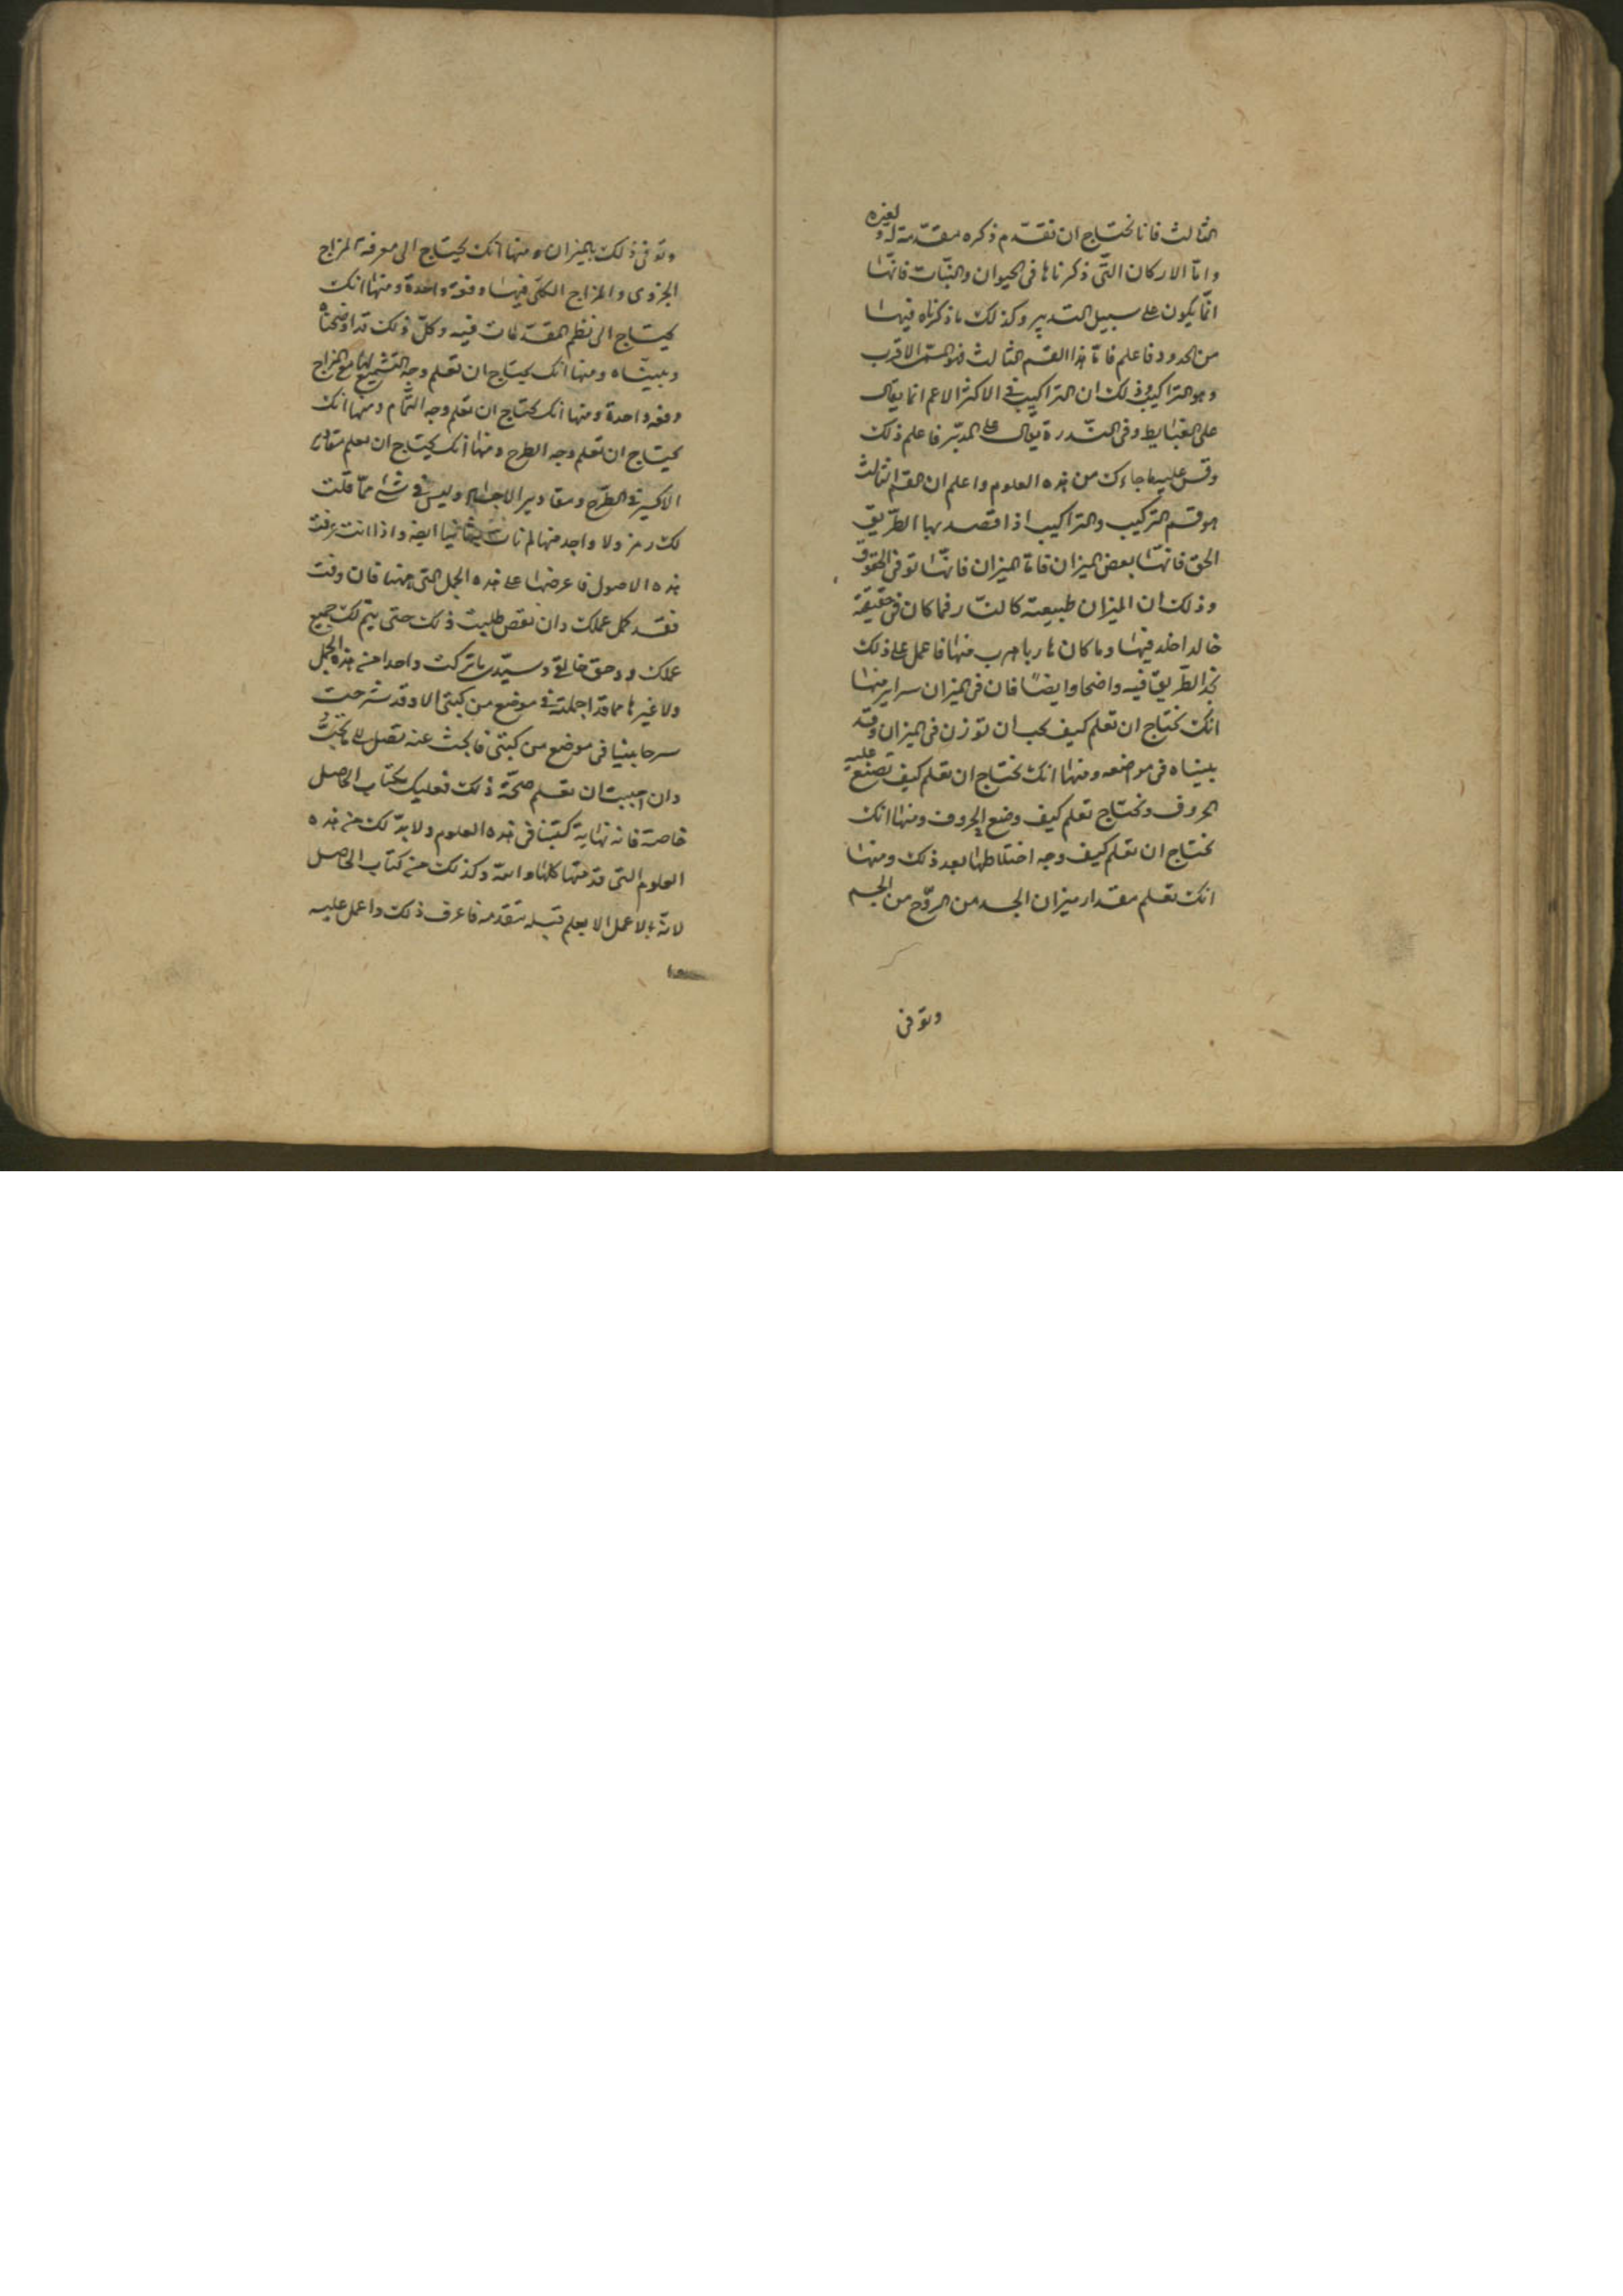 الثالث فانا نحتاج ان نقدّم ذكره مقدّمة له ولغيره
وامّا الاركان التّى ذكرناها فى الحيوان والنّبات فانّها
انّما يكون على سبيل التدبير وكذلك ما ذكرناه فيها
من الحدود فاعلم فامّا هذا القسم الثالث فهو القسم الاقرب
وهو التراكيب وذلك ان التراكيب فى الاكثر الاعم انما يقال
على العبايط وفى النّدرة يقال على المدبّر فاعلم ذلك
وقس عليه ما جاءك من هذه العلوم واعلم ان القسم الثالث
هو قسم التركيب والتراكيب اذا قصد بها الطّريق
الحق فانّها بعض الميزان فامّا الميزان فانّها توفى الحقوق
وذلك ان الميزان طبيعته كالنّار فما كان فى حقيقة
خالدا خلد فيها وما كان هاربا هرب منها فاعمل على ذلك
تجد الطّريق فيه واضحا وايضًا فان فى الميزان سراير منها
انك تحتاج ان تعلم كيف يجب ان توزن فى الميزان وقد
بيناه فى مواضعه ومنها انك تحتاج ان تعلم كيف تصنع عليه
الحروف وتحتاج تعلم كيف وضع الحروف ومنها انك
تحتاج ان تعلم كيف وجه اختلاطها بعد ذلك ومنها
انك تعلم مقدار ميزان الجسد من الرّوح من الجسم
وتوفى
وتوفى ذلك بالميزان ومنها انك تحتاج الى معرفة المزاج
الجزوى والمزاج الكلّى فيها دفعة واحدة ومنها انك
تحتاج الى نظم المقدّمات فيه وكلّ ذلك قد اوضحناه
وبينّاه ومنها انك تحتاج ان تعلم وجه التشميع لها مع المزاج
دفعه واحدة ومنها انك تحتاج ان تعلم وجه التّمام ومنها انك
تحتاج ان تعلم وجه الطرح ومنها انك تحتاج ان تعلم مقادير
الاكسير فى الطّرح ومقادير الاجساد وليس فى شئ ممّا قلت
لك رمز ولا واحد منها لم نات ايضا واذا انت عرفت
هذه الاصول فاعرضها على هذه الجمل التى ههنا فان وفت
فقد كمل عملك وان نقص طلبت ذلك حتى يتم لك جميع
عملك ووحق خالقى وسيّدى ما تركت واحدا من هذه الجمل
ولا غيرها مما قد اجملته فى موضع من كتبى الا وقد شرحت
شرحا بينا فى موضع من كتبى فابحث عنه تصل الى ما تحبّ
وان احببت ان تعلم صحّة ذلك فعليك بكتاب الحاصل
خاصة فانه نهاية كتبنا فى هذه العلوم ولا بدّ لك من هذه
العلوم التى قدمتها كلها والله وكذلك من كتاب الحاصل
لانّه لا عمل الا بعلم قبله يتقدمه فاعرف ذلك واعمل عليه